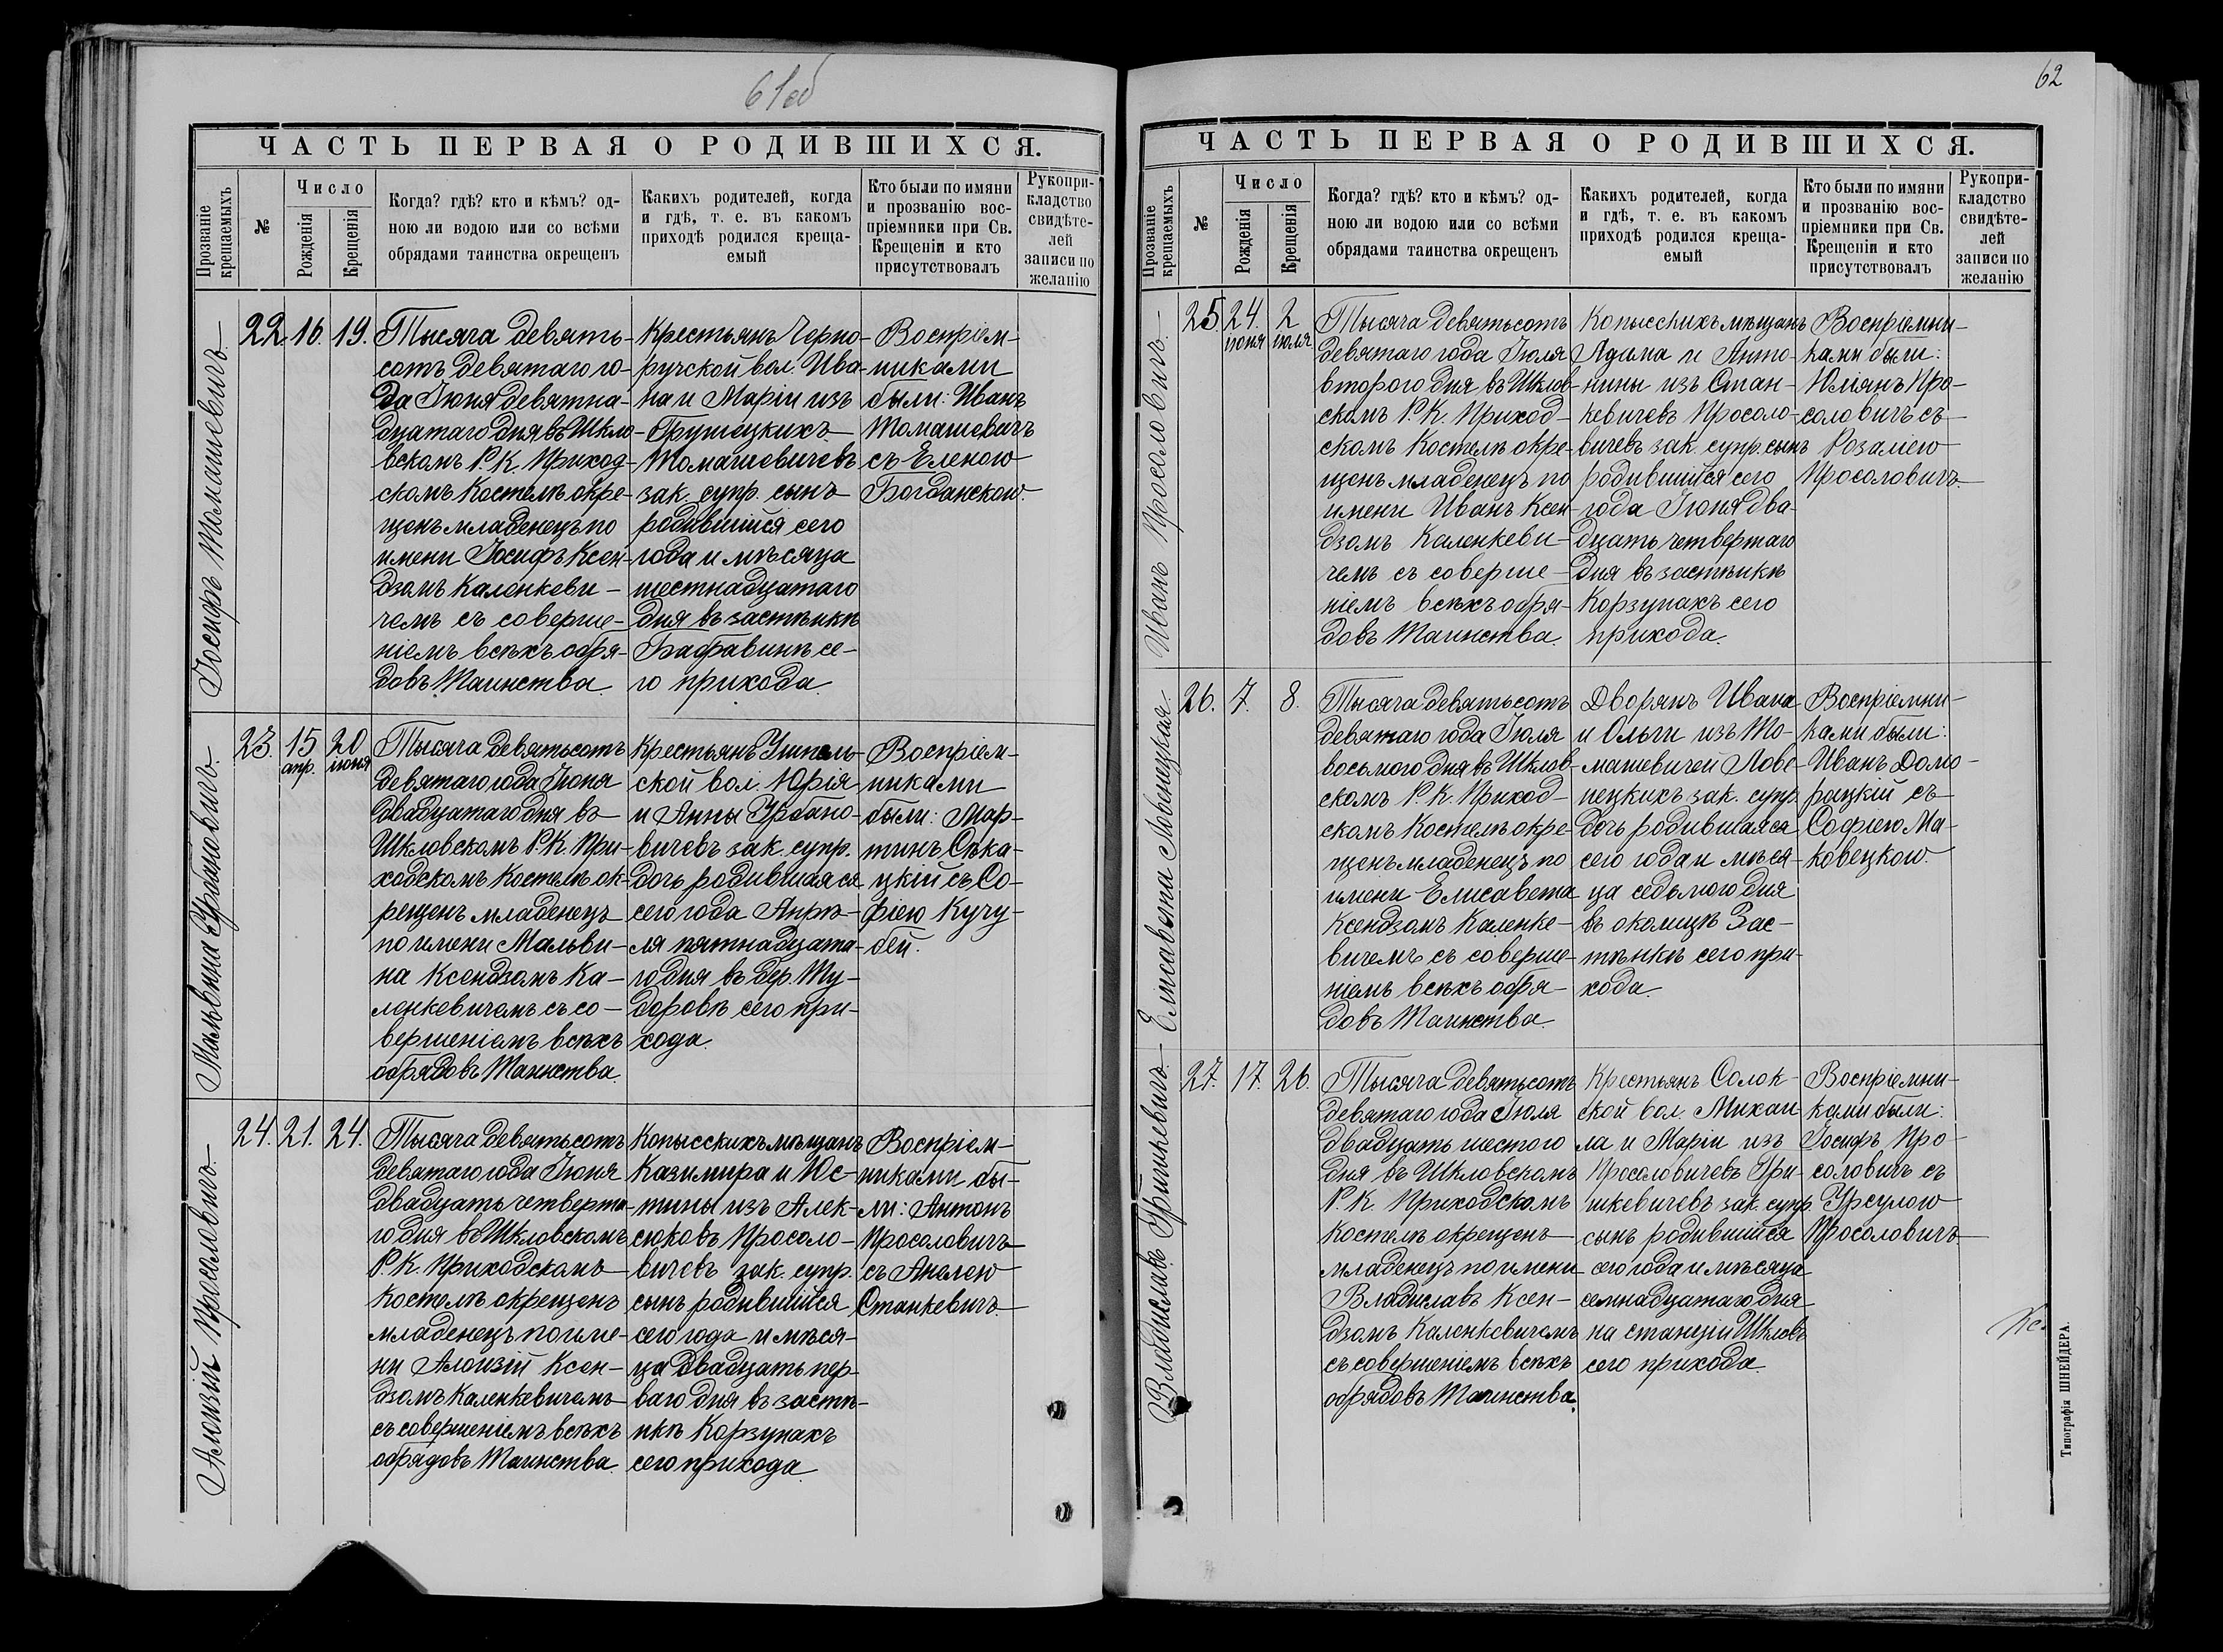 61 об
ЧАСТЬ ПЕРВАЯ О РОДИВШИХСЯ.
Прозваніе крещаемыхъ
№
Число
Рожденія
Крещенія
Когда? гдѣ? кто и кѣмъ? од-
ною ли водою или со всѣми
обрядами таинства окрещенъ
Какихъ родителей, когда
и гдѣ, т. е. въ какомъ
приходѣ родился креща-
емый
Кто были по имяни
и прозванію вос-
пріемники при Св.
Крещеніи и кто
присутствовалъ
Рукопри-
кладство
свидѣте-
лей
записи по
желанію
Іосифъ Томашевичъ
22. 16. 19.
Тысяча девять-
сотъ девятаго го-
да Іюня девятна-
дцатаго дня въ Шкло-
вскомъ Р. К. Приход-
скомъ Костелѣ окре-
щенъ младенецъ по
имени Іосифъ Ксен-
дзомъ Каленкеви-
чемъ съ соверше-
ніемъ всѣхъ обря-
довъ Таинства
Крестьянъ Черно-
ручской вол. Ива-
на и Маріи изъ
Грушецкихъ
Томашевичевъ
зак. супр. сынъ
родившійся сего
года и мѣсяца
шестнадцатаго
дня въ застѣнкѣ
се-
го прихода.
Воспріем-
никами
были: Иванъ
Томашевичъ
съ Еленою
Богданскою.
Мальвина Урбановичъ.
23. 15 апр. 20 іюня
Тысяча девятьсотъ
девятаго года Іюня
двадцатаго дня въ
Шкловскомъ Р. К. При-
ходскомъ Костелѣ ок-
рещенъ младенецъ
по имени Мальви-
на Ксендзомъ Ка-
ленкевичемъ съ со-
вершеніемъ всѣхъ
обрядовъ Таинства.
Крестьянъ
ской вол. Юрія
и Анны Урбано-
вичевъ зак. супр.
дочь родившаяся
сего года Апрѣ-
ля пятнадцата-
го дня въ дер. Ту-
доровѣ сего при-
хода.
Воспріем-
никами
были: Мар-
тинъ Сѣка-
цкій съ Со-
фіею Кучу-
бей.
Алоизій Просоловичъ.
24. 21. 24.
Тысяча девятьсотъ
девятаго года Іюня
двадцать четверта-
го дня въ Шкловскомъ
Р. К. Приходскомъ
Костелѣ окрещенъ
младенецъ по име-
ни Алоизій Ксен-
дзомъ Каленкевичемъ
съ совершеніемъ всѣхъ
обрядовъ Таинства.
Копысскихъ мѣщанъ
Казимира и Юс-
тины изъ Алек-
сюковъ Просоло-
вичевъ зак. супр.
сынъ родившійся
сего года и мѣся-
ца двадцать пер-
ваго дня въ застѣ-
нкѣ Корзунахъ
сего прихода.
Воспріем-
никами бы-
ли: Антонъ
Просоловичъ
съ Анелею
Станкевичъ
62
ЧАСТЬ ПЕРВАЯ О РОДИВШИХСЯ.
Прозваніе крещаемыхъ
№
Число
Рожденія
Крещенія
Когда? гдѣ? кто и кѣмъ? од-
ною ли водою или со всѣми
обрядами таинства окрещенъ
Какихъ родителей, когда
и гдѣ, т. е. въ какомъ
приходѣ родился креща-
емый
Кто были по имяни
и прозванію вос-
пріемники при Св.
Крещеніи и кто
присутствовалъ
Рукопри-
кладство
свидѣте-
лей
записи по
желанію
Иванъ Просоловичъ.
25 24. іюня 2 іюля
Тысяча девятьсотъ
девятаго года Іюля
второго дня въ Шклов-
скомъ Р. К. Приход-
скомъ Костелѣ окре-
щенъ младенецъ по
имени Иванъ Ксен-
дзомъ Каленкеви-
чемъ съ соверше-
ніемъ всѣхъ обря-
довъ Таинства.
Копысскихъ мѣщанъ
Адама и Анто-
нины изъ Стан-
кевичевъ Просоло-
вичевъ зак. супр. сынъ
родившійся сего
года Іюня два-
дцать четвертаго
дня въ застѣнкѣ
Корзунахъ сего
прихода.
Воспріемни-
ками были:
Юліянъ Про-
соловичъ съ
Розаліею
Просоловичъ.
Елисавета
26. 7. 8.
Тысяча девятьсотъ
девятаго года Іюля
восьмого дня въ Шклов-
скомъ Р. К. Приход-
скомъ Костелѣ окре-
щенъ младенецъ по
имени Елисавета
Ксендзомъ Каленке-
вичемъ съ соверше-
ніемъ всѣхъ обря-
довъ Таинства.
Дворянъ Ивана
и Ольги изъ То-
машевичей Лове-
нецкихъ зак. супр.
дочь родившаяся
сего года и мѣся-
ца седьмого дня
въ околицѣ Зас-
тѣнкѣ сего при-
хода.
Воспріемни-
ками были:
Иванъ Домо-
рацкій съ
Софіею Ма-
ковецкою.
Владиславъ Гришкевичъ
27. 17. 26.
Тысяча девятьсотъ
девятаго года Іюля
двадцать шестого
дня въ Шкловскомъ
Р. К. Приходскомъ
Костелѣ окрещенъ
младенецъ по имени
Владиславъ Ксен-
дзомъ Каленкевичемъ
съ совершеніемъ всѣхъ
обрядовъ Таинства.
Крестьянъ Солок-
ской вол. Михаи
ла и Маріи изъ
Просоловичевъ Гри-
шкевичевъ зак. супр.
сынъ родившійся
сего года и мѣсяца
семнадцатаго дня
на станціи Шкловъ
сего прихода.
Воспріемни-
ками были:
Іосифъ Про-
соловичъ съ
Урсулою
Просоловичъ
Типографія ШНЕЙДЕРА.